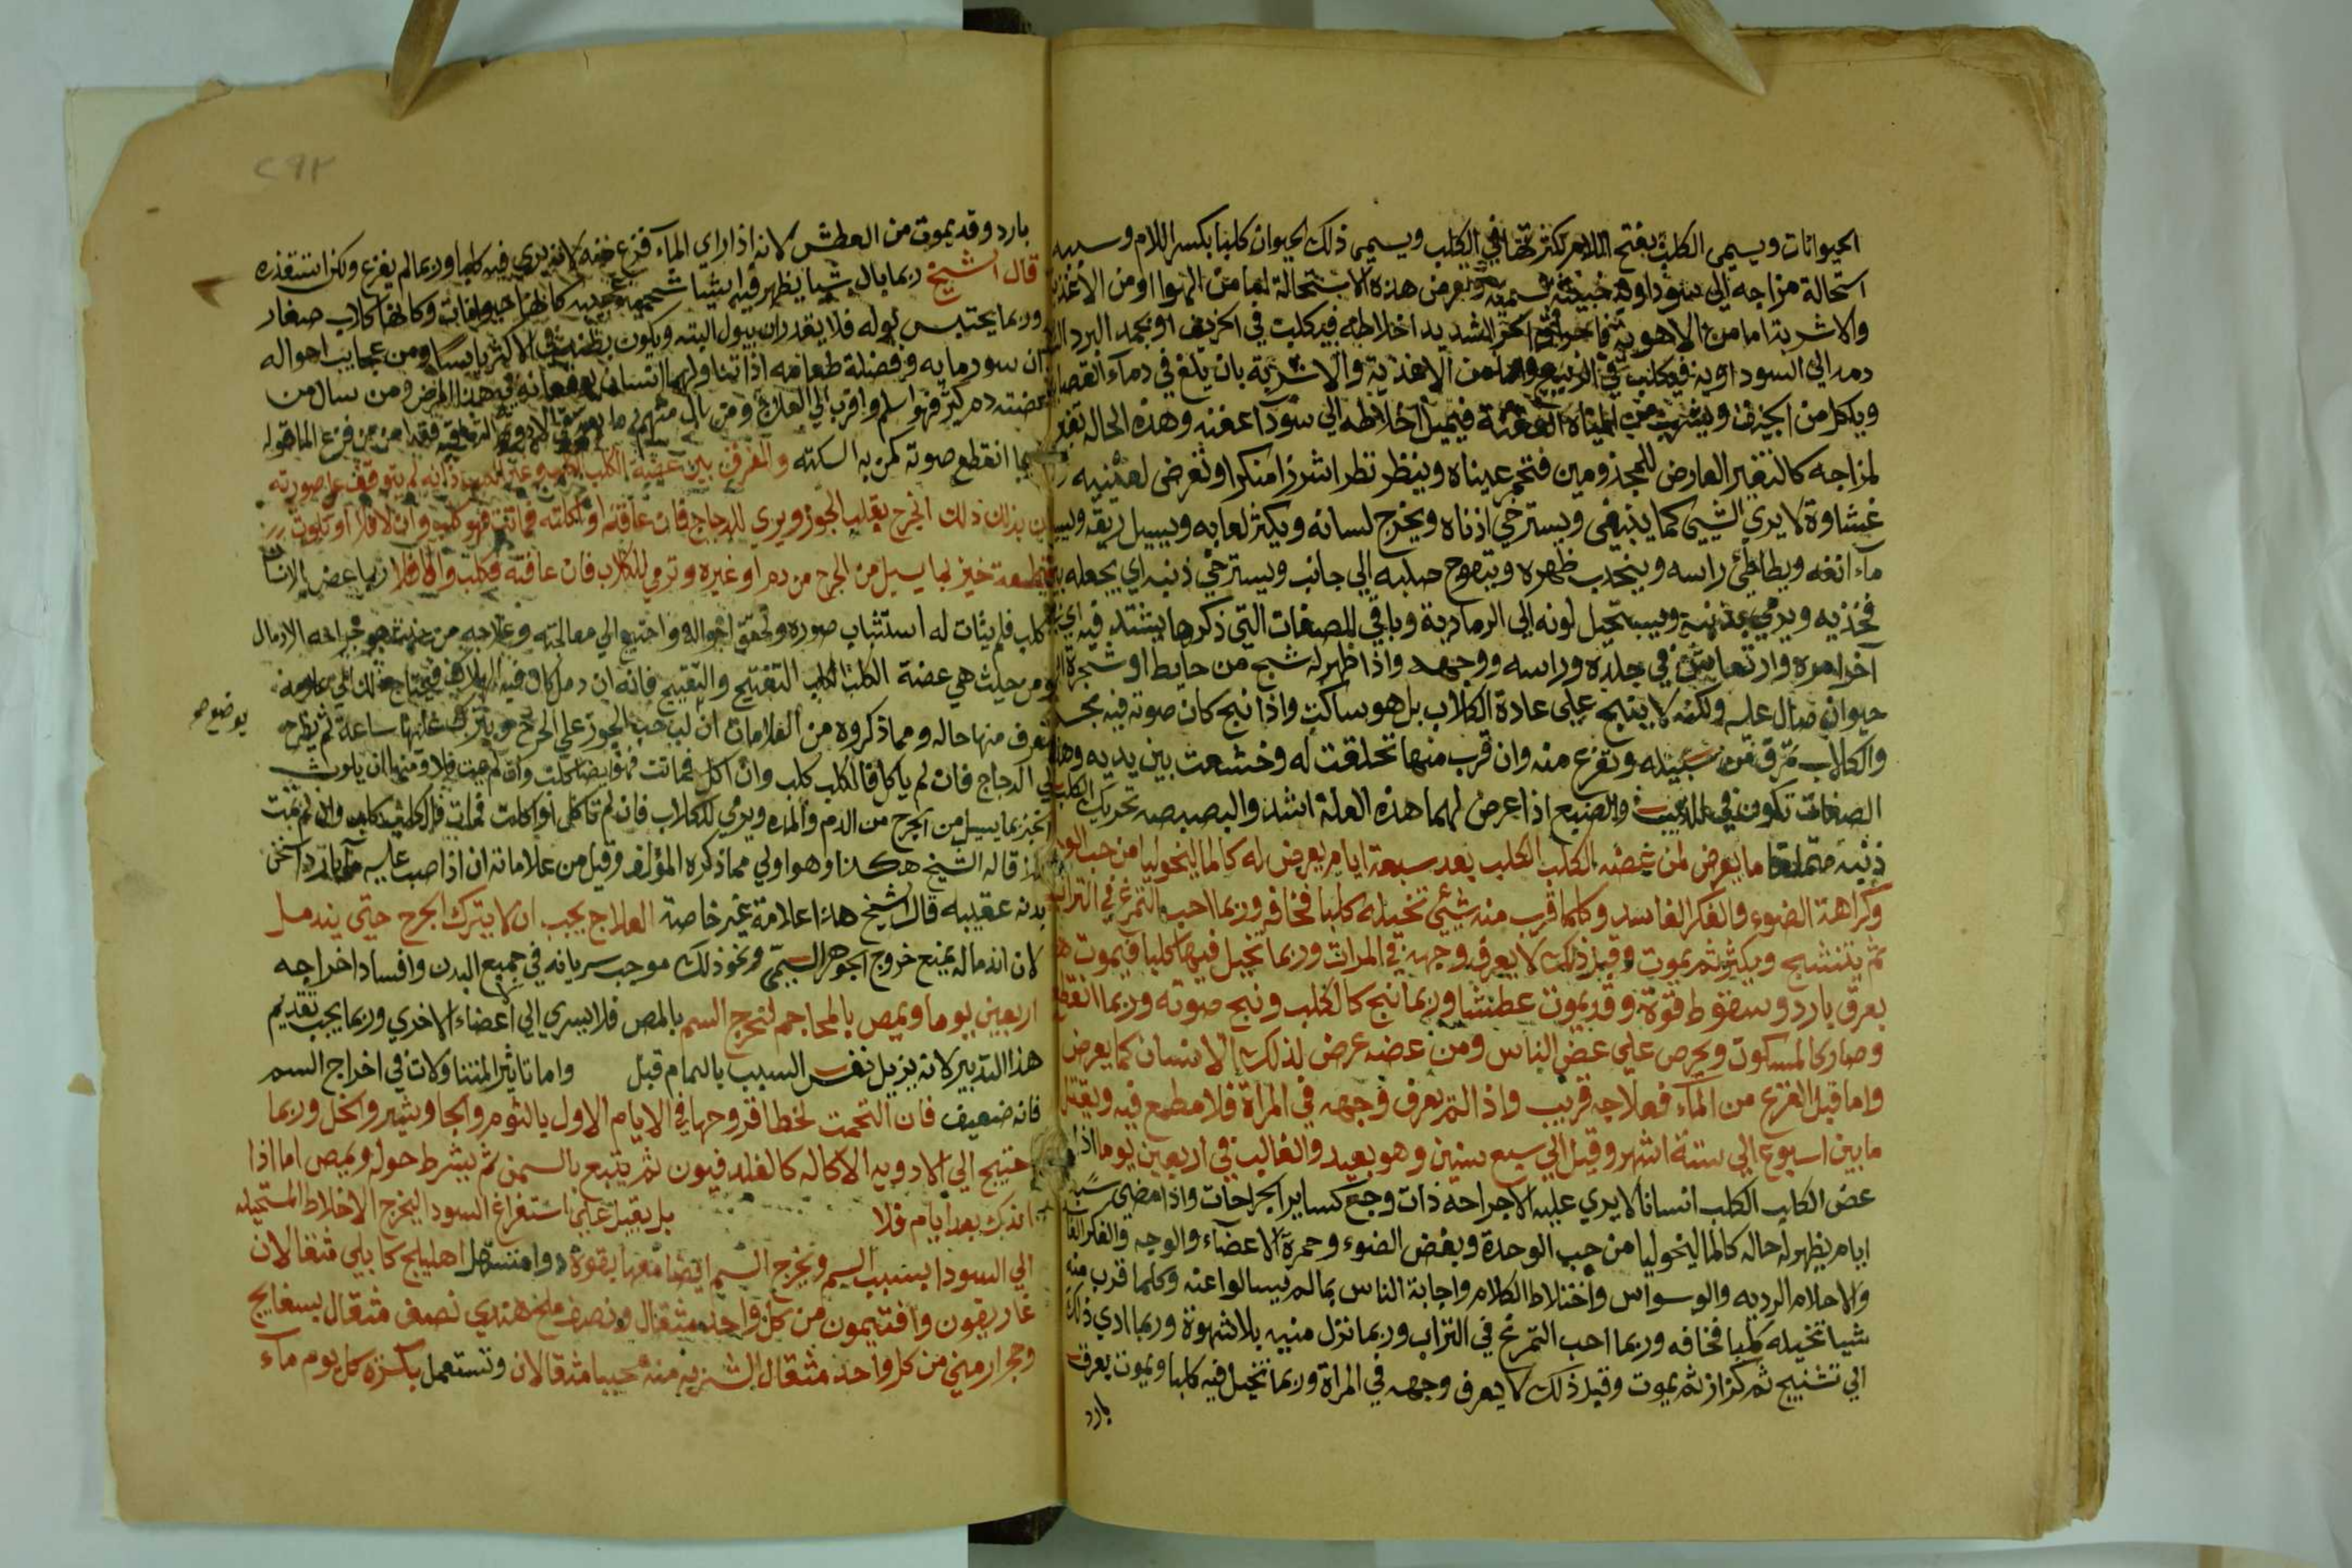 الحيوانات ويسمى الكلب بفتح اللام لكثرتها في الكلب ويسمى ذلك الحيوان كلبا بكسر اللام وسببه
استحالة مزاجه الى سوداوية خبيثة سمية وتعرض هذه الاستحالة اما من الهوا او من الاغذية
والاشربة اما من الاهوية الحر الشديد اخلاطه فيكلب في الخريف او يجمد البرد
دمه الى السوداوية فيكلب في الربيع واما من الاغذية والاشربة بان يلغ في دماء القصا
وياكل من الجيف ويشرب من المياه العفنة فيميل اخلاطه الى سودا عفنه وهذه الحالة تغير
لمزاجه كالتغير العارض للمجذومين فتحمر عيناه وينظر نظرا شزرا منكرا وتعرض لعينيه
غشاوة لا يرى الشيء كما ينبغي ويسترخي اذناه ويخرج لسانه ويكثر لعابه ويسيل ريقه ويسيل
ماء انفه ويطاطئ راسه وينحدب ظهره ويتعوج صلبه الى جانب ويسترخي ذنبه اي يجعله بين
فخذيه ويرمي بذنبه ويستحيل لونه الى الرمادية وباقي الصفات التي ذكرها يشتد فيه اي
آخر امره وارتعاش في جلده وراسه ووجهه واذا ظهر له شبح من حايط او شجرة
حيوان صال عليه ولكنه لا ينبح على عادة الكلاب بل هو ساكت واذا نبح كان صوته فيه بحح
والكلاب تمرق من سبيله وتفزع منه وان قرب منها تحلقت له وخشعت بين يديه وهذه
الصفات تكون في الذيب والضبع اذا عرض لهما هذه العلة اشد والبصبصه تحريك الكلب
ذنبه متملقا ما يعرض لمن عضه الكلب الكلب بعد سبعة ايام يعرض له كالماليخوليا من حب الو
وكراهة الضوء والفكر الفاسد وكلما قرب منه شيئ تخيله كلبا فخافه وربما احب التمرغ في التراب
ثم يتشنج ويكثر ثم يموت وقبل ذلك لا يعرف وجهه في المرات وربما تخيل فيها كلبا فيموت
بعرق بارد وسقوط قوة وقد يموت عطشا وربما نبح كالكلب ونبح صوته وربما انقطع
وصار كالمسكوت ويحرص على عض الناس ومن عضه عرض لذلك الانسان كما يعرض
واما قبل الفزع من الماء فعلاجه قريب واذا لم يعرف وجهه في المراة فلا مطمع فيه ويقتل
ما بين اسبوع الى ستة اشهر وقيل الى سبع سنين وهو بعيد والغالب في اربعين يوما اذا
عض الكلب الكلب انسانا لا يرى عليه الا جراحه ذات وجع كساير الجراحات واذا مضى ستة
ايام يظهر له حاله كالماليخوليا من حب الوحدة وبغض الضوء وحمرة الاعضاء والوجه والفكر الفا
والاحلام الرديه والوسواس واختلاط الكلام واجابة الناس بما لم يسالوا عنه وكلما قرب منه
شيا تخيله كلبا فخافه وربما احب التمرغ في التراب وربما نزل منيه بلا شهوة وربما ادى ذلك
الى تشنج ثم كزاز ثم يموت وقبل ذلك لا يعرف وجهه في المراة وربما تخيل فيه كلبا ويموت بعرق
بارد
٢٩٢
بارد وقد يموت من العطش لانه اذا راى الماء فزع منه لانه يرى فيه كلبا وربما لم يفزع ولكن استقذره
قال الشيخ ربما بال شيا يظهر فيه اشيا لحمية عجيبة كانها حيوانات وكانها كلاب صغار
وربما يحتبس بوله فلا يقدر ان يبول البته ويكون بطنه في الاكثر يابسا ومن عجايب احواله
ان سور مايه وفضلة طعامه اذا تناولهما انسان يعرض هذا المرض ومن سال من
عضته دم كثير فهو اسلم واقرب الى العلاج
انقطع صوته كمن به السكته والفرق بين عضة الكلب
بدن ذلك الجرح بقلب الجوز ويرمى للدجاج فان عافته او اكلته فماتت فهو كلب وان لا فلا او تلوث
قطعة خبز بما يسيل من الجرح من دم او غيره وترمى للكلاب فان عافته فكلب والا فلا ربما عض الانسان
كلب فلم يثات له استثبات صوره وتحقق احواله واحتيج الى معالجته وعلاجه من حيث هو جراحه الادمال
ومن حيث هي عضة الكلب الكلب التفتيح والتقييح فانه ان دمل كان فيه الهلاك فيحتاج لذلك الى علامة
يعرف منها حاله ومما ذكروه من العلامات ان لب حب الجوز على الجرح ويترك عليها ساعة ثم يطرح
يوضع
الى الدجاج فان لم ياكل فالكلب كلب وان اكل فماتت فهو ايضا كلب وان لم يمت فلا ومنها ان يلوث
الخبز بما يسيل من الجرح من الدم والمده ويرمى للكلاب فان لم تاكل او اكلت فماتت فالكلب كلب وان لم يمت
قاله الشيخ هكذا وهو اولى مما ذكره المؤلف وقيل من علاماته ان اذا صب عليه ماء بارد سخن
بدنه عقيبه قال الشيخ هذا علامة غير خاصة العلاج يجب ان لا يترك الجرح حتى يندمل
لان اندماله يمنع خروج الجوهر السمي ونحو ذلك موجب سريانه في جميع البدن وافساد اخراجه
اربعين يوما ويمص بالمحاجم لتخرج السم بالمص فلا يسري الى اعضاء الاخرى وربما يجب تقديم
هذا التدبير لانه يزيل نفس السبب بالتمام قبل واما تاثير المتناولات في اخراج السم
فانه ضعيف فان التحمت لخطا قروحها في الايام الاول بالثوم والجاوشير والخل وربما
احتيج الى الادويه الاكاله كالفلدفيون ثم يتبع بالسمن ثم يشرط حوله ويمص اما اذا
اندرك بعد ايام فلا بل يقبل على استفراغ السودا ليخرج الاخلاط المستحيله
الى السودا بسبب السم ويخرج السم ايضا معها بقوة دوا مسهل اهليلج كابلي مثقالان
غاريقون وافتيمون من كل واحد مثقال ونصف ملح هندي نصف مثقال بسفايج
وحجر ارمني من كل واحد مثقال الشربه منه حبيبا مثقالان وتستعمل بكرة كل يوم ماء